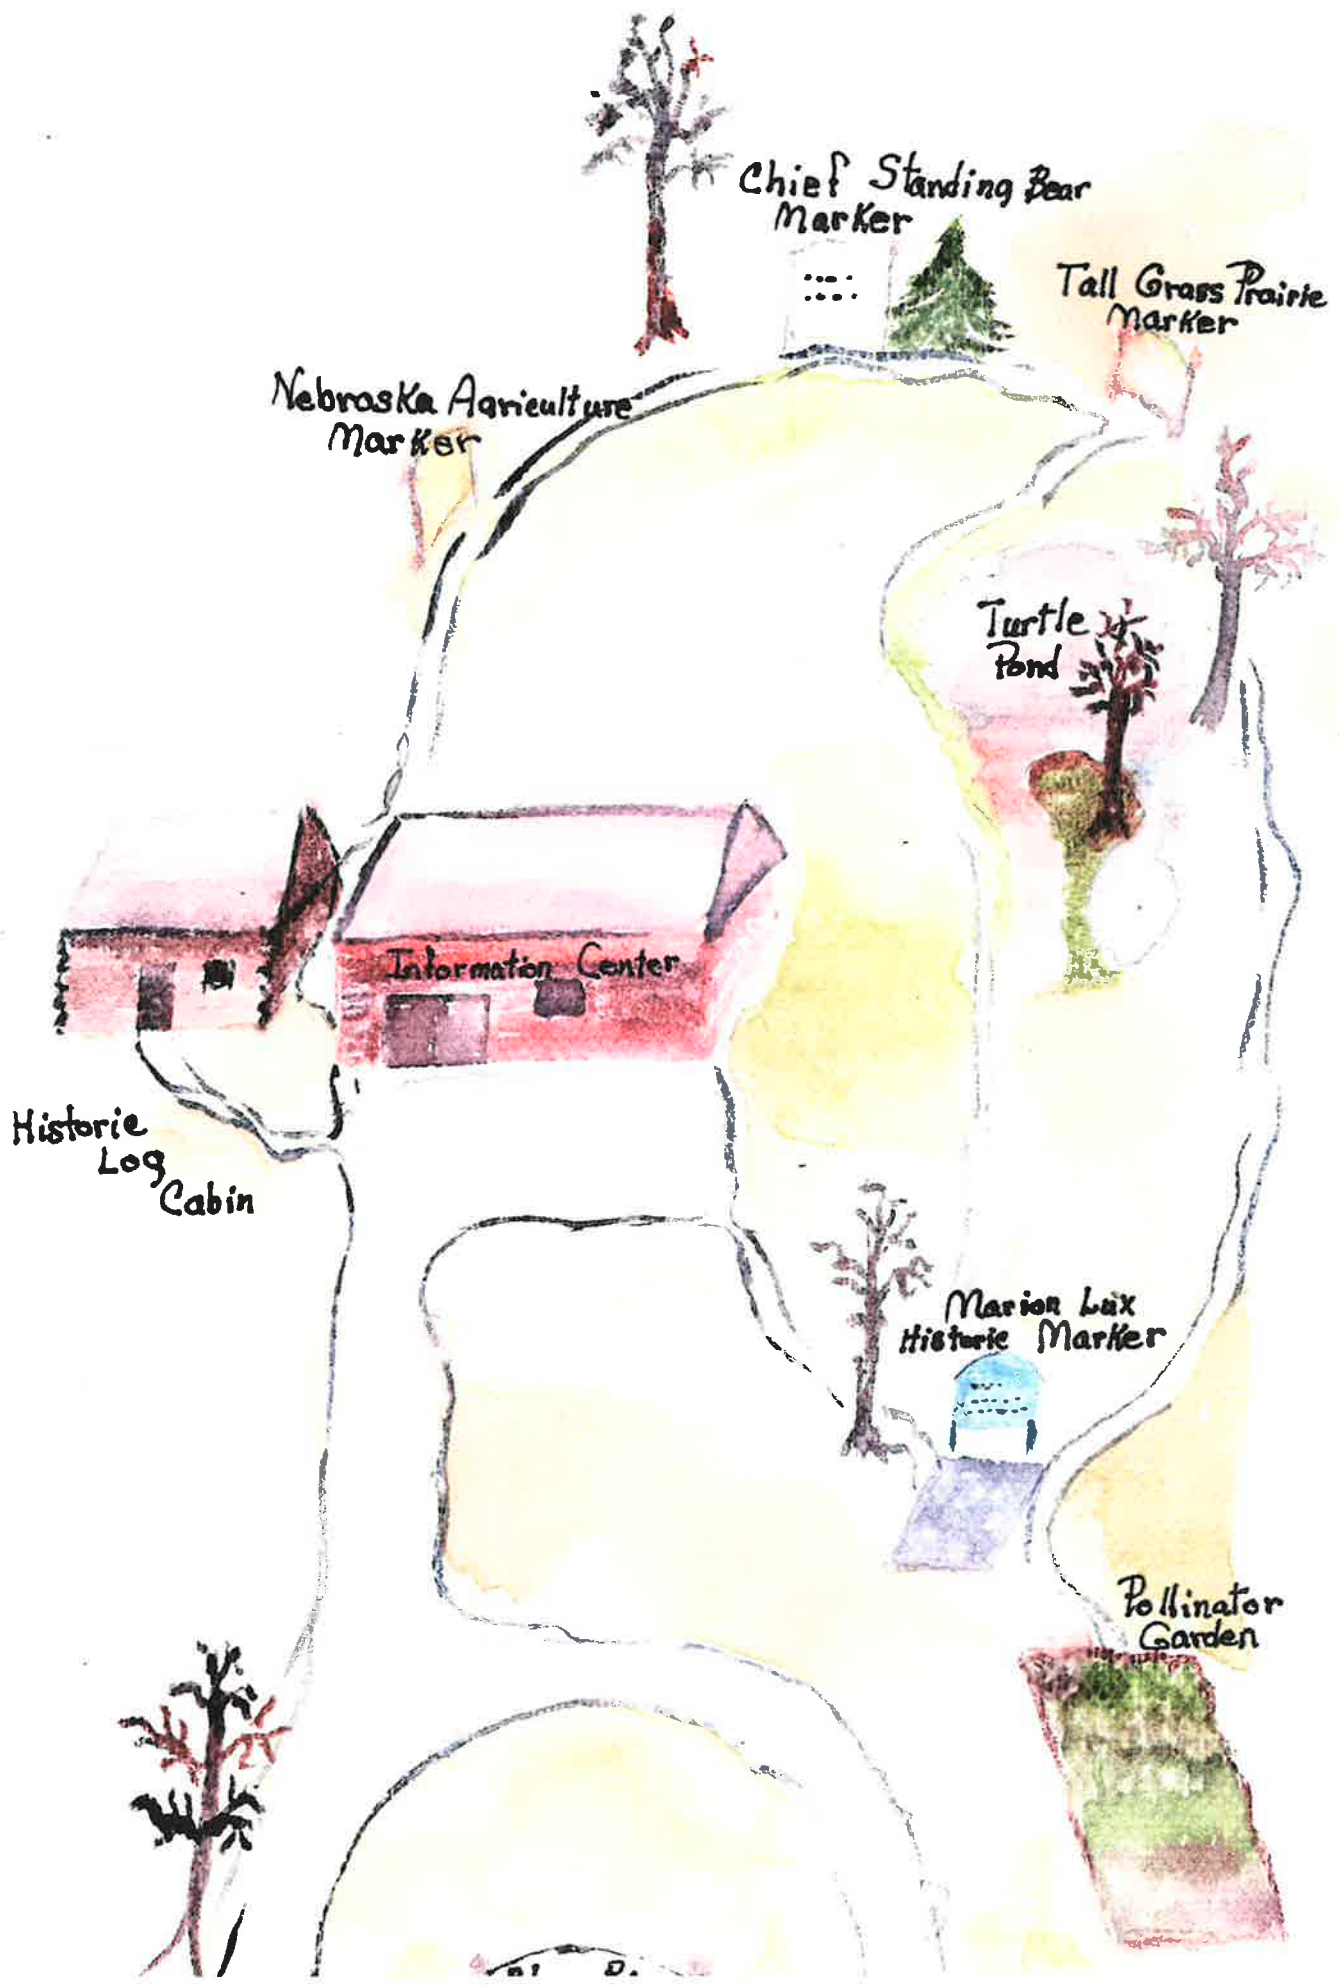 Chief Standing Bear
Marker
Tall Grass Prairie
Marker
Nebraska Agriculture
Marker
Turtle
Pond
Information Center
Historic
Log
Cabin
Marion Lux
Historic Marker
Pollinator
Garden